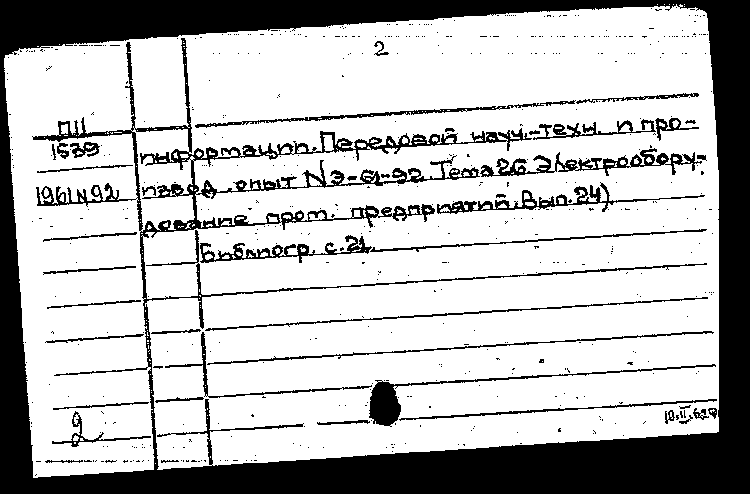 2
П11
1539
информации. Передовой науч.-техн. и про-
1961 N 92 извод. опыт N Э-61-92. Тема 26 Электрообору-
дование пром. предприятий. Вып. 24).
Библиогр. с. 21.
2